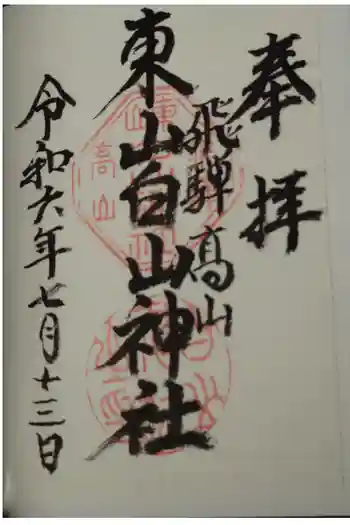 奉拝
飛騨高山
東山白山神社
令和六年七月十三日
高山